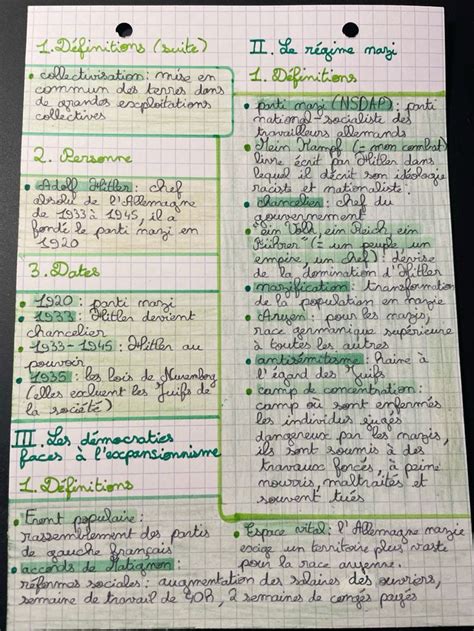 1. Définitions (suite)
• collectivisation : mise en
commun des terres dans
de grandes exploitations
collectives
2. Personne
• Adolf Hitler : chef
absolu de l'Allemagne
de 1933 à 1945, il a
fondé le parti nazi en
1920
3. Dates
• 1920 : parti nazi
• 1933 : Hitler devient
chancelier
• 1933-1945 : Hitler au
pouvoir
• 1935 : les lois de Nuremberg
(elles excluent les Juifs de
la société)
II. Le régime nazi
1. Définitions
• parti nazi (NSDAP) : parti
national-socialiste des
travailleurs allemands
• Mein Kampf (= mon combat)
livre écrit par Hitler dans
lequel il décrit son idéologie
raciste et nationaliste
• chancelier : chef du
gouvernement
• "ein Volk, ein Reich, ein
Führer" (= un peuple, un
empire, un chef) : devise
de la domination d'Hitler
• nazification : transformation
de la population en nazie
• Aryen : pour les nazis,
race germanique supérieure
à toutes les autres
• antisémitisme : haine à
l'égard des Juifs
• camp de concentration :
camp où sont enfermés
les individus jugés
dangereux par les nazis,
ils sont soumis à des
travaux forcés, à peine
nourris, maltraités et
souvent tués
III. Les démocraties
faces à l'expansionnisme
1. Définitions
• Front populaire :
rassemblement des partis
de gauche français
• accords de Matignon :
réformes sociales : augmentation des salaires des ouvriers,
semaine de travail de 40h, 2 semaines de congés payés
• Espace vital : l'Allemagne nazie
exige un territoire plus vaste
pour la race aryenne.